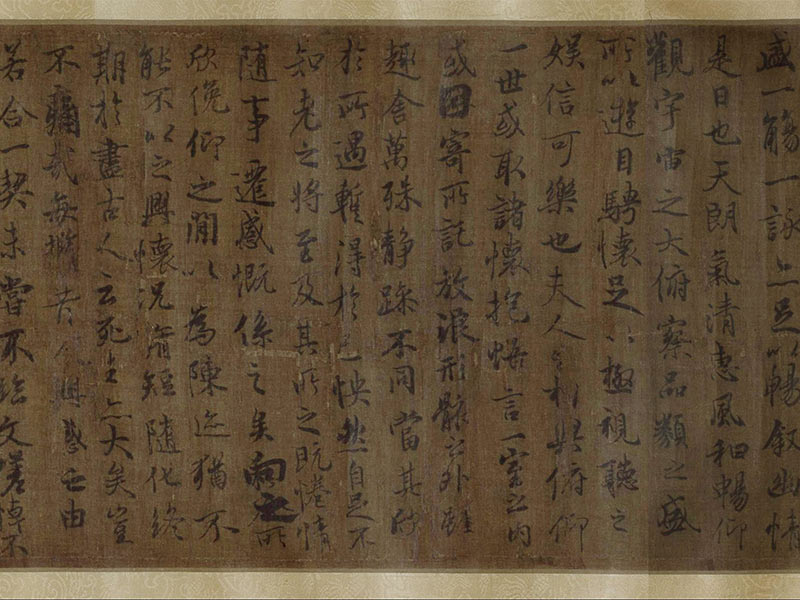 盛一觴一詠亦足以暢叙幽情
是日也天朗氣清惠風和暢仰
觀宇宙之大俯察品類之盛
所以遊目騁懷足以極視聽之
娛信可樂也夫人之相與俯仰
一世或取諸懷抱悟言一室之內
或因寄所託放浪形骸之外雖
趣舍萬殊静躁不同當其欣
於所遇蹔得於己怏然自足不
知老之將至及其所之既惓情
随事遷感慨係之矣向之所
欣俛仰之閒以為陳迹猶不
能不以之興懷況脩短隨化終
期於盡古人云死生亦大矣豈
不痛哉每攬昔人興感之由
若合一契未嘗不臨文嗟悼不